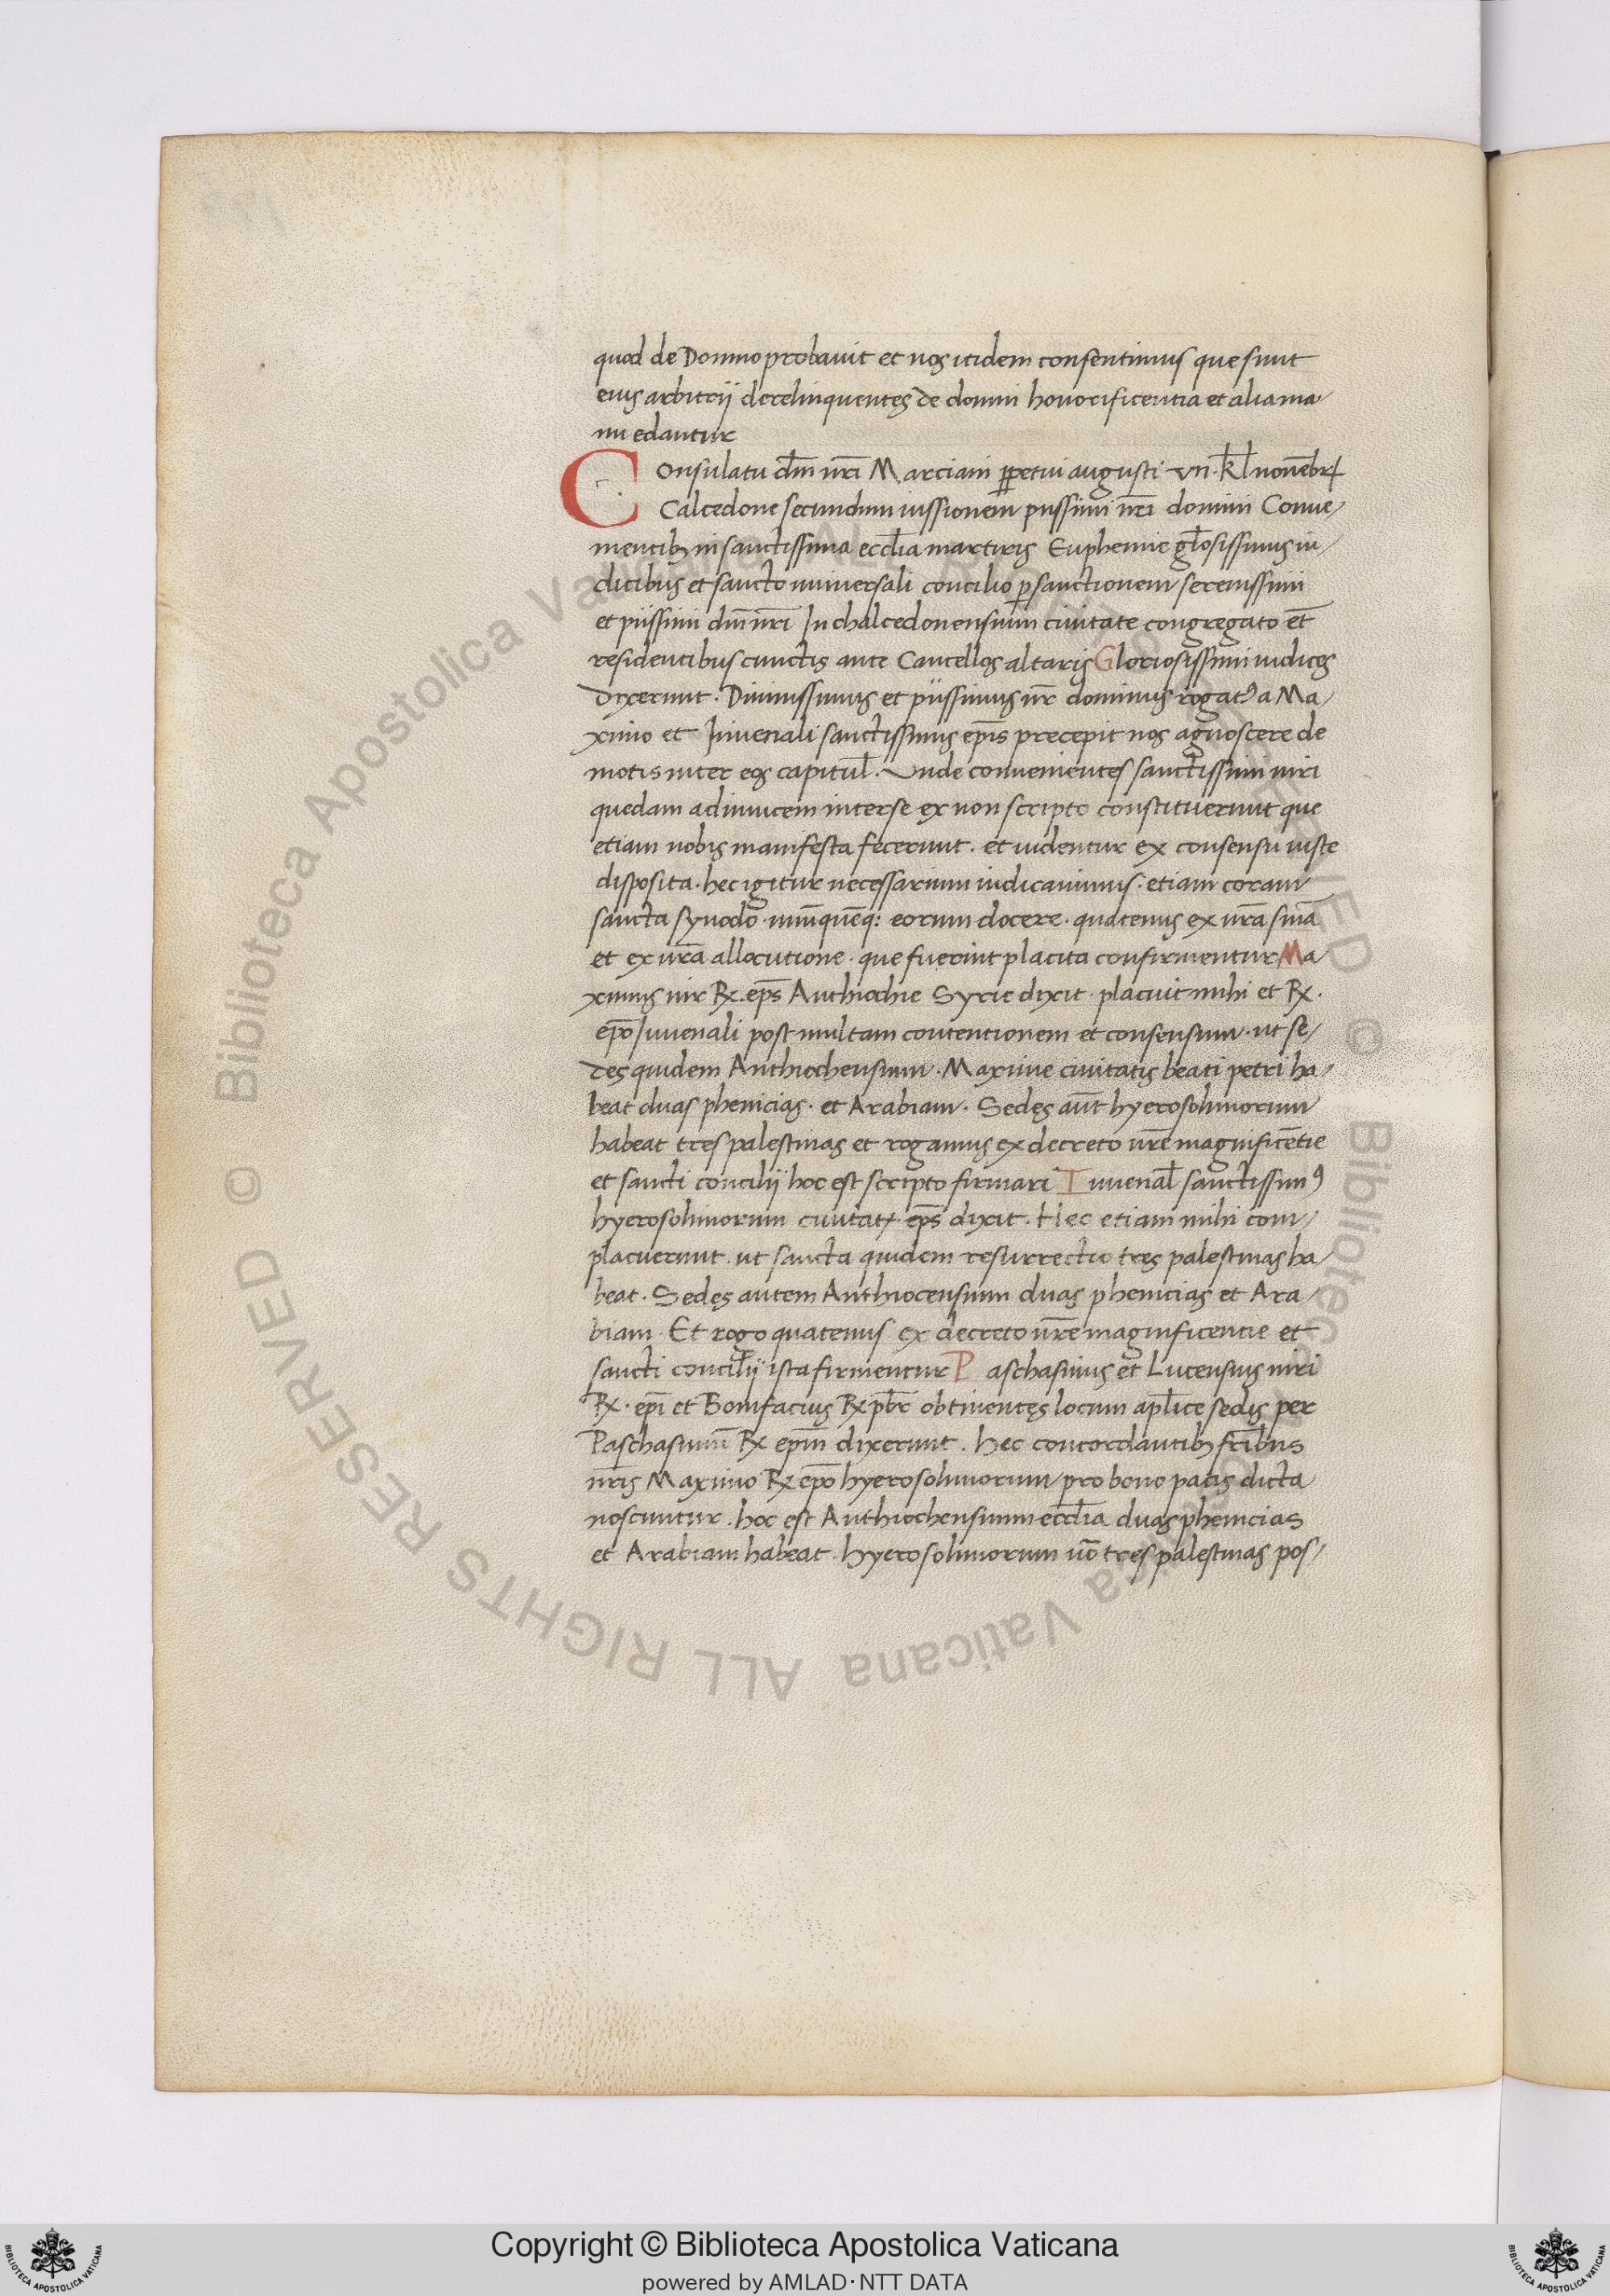 quod de Domno probauit et nos itidem consentimus que sunt
eius arbitrij derelinquentes de domni honorificentia et alia ma/
nu edantur
Consulatu dm̄ nr̄i Marciani ꝑpetui augusti vii. kl̄ nouēbr̄
Calcedone secundum iussionem piissimi nr̄i domini Conue/
nientibꝫ in sanctissima eccl̄ia martiris Euphemie gl̄osissimis iu/
dicibus et sancto uniuersali concilio ꝑ sanctionem serenissimi
et piissimi dm̄ nr̄i In chalcedonensium ciuitate congregato et̄
residentibus cunctis ante Cancellos altaris Gloriosissimi iudices
dixerunt. Diuinissimus et piissimus nr̄ dominus rogatꝰ a Ma/
ximo et Iuuenali sanctissimis ep̄is precepit nos agnoscere de
motis inter eos capitul̄. Unde conuenientes sanctissimi uiri
quedam adinuicem inter se ex non scripto constituerunt que
etiam nobis manifesta fecerunt. et uidentur ex consensu iuste
disposita. hec igitur necessarium iudicauimus. etiam coram
sancta synodo. unūquēq: eorum docere. quatenus ex ur̄a sn̄ia
et ex ur̄a allocutione. que fuerint placita confirmentur Ma
ximus uir Rx. ep̄s Anthiochie Syrie dixit. placuit mihi et Rx.
ep̄o Iuuenali post multam contentionem et consensum. ut se/
des quidem Anthiochensium. Maxime ciuitatis beati petri ha/
beat duas phenicias. et Arabiam. Sedes aūt hyerosolimorum
habeat tres palestinas et rogamus ex decreto ur̄e magnificētie
et sancti concilij hoc est scripto firmari Iuuenal̄ sanctissimꝰ
hyerosolimorum ciuitatꝭ ep̄s dixit. Hec etiam mihi com/
placuerunt. ut sancta quidem resurrectio tres palestinas ha/
beat. Sedes autem Anthiocensium duas phenicias et Ara/
biam. Et rogo quatenus ex decreto ur̄e magnificentie et
sancti concilij ista firmentur Paschasinus et Lucensius uiri
Rx. ep̄i et Bonifacius Rx pb̄r obtinentes locum apl̄ice sedis per
Paschasinum̄ Rx ep̄m dixerunt. Hec concordantibꝫ fr̄ibus
nr̄is Maximo Rx ep̄o hyerosolimorum pro bono pacis dicta
noscuntur. hoc est Anthiochensium eccl̄ia duas phenicias
et Arabiam habeat. hyerosolimorum uō tres palestinas pos/
© Biblioteca Apostolica Vaticana ALL RIGHTS RESERVED © Biblioteca Apostolica Vaticana ALL RIGHTS RESERVED
Copyright © Biblioteca Apostolica Vaticana
powered by AMLAD·NTT DATA
BIBLIOTECA APOSTOLICA VATICANA
BIBLIOTECA APOSTOLICA VATICANA